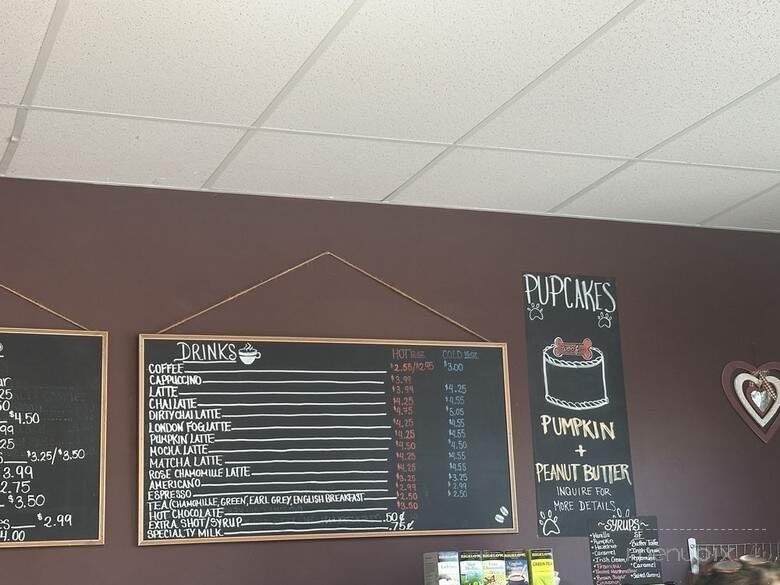 ar
25
50
$4.50
99
25
$3.25/$3.50
3.99
2.75
$3.50
es $2.99
4.00
DRINKS
HOT COLD
COFFEE $2.55/$2.95 $3.00
CAPPUCCINO $3.99
LATTE $3.99 $4.25
CHAI LATTE $4.25 $4.55
DIRTY CHAI LATTE $4.75 $5.05
LONDON FOG LATTE $4.25 $4.55
PUMPKIN LATTE $4.25 $4.55
MOCHA LATTE $4.50 $4.50
MATCHA LATTE $4.25 $4.55
ROSE CHAMOMILLE LATTE $4.25 $4.55
AMERICANO $3.25 $3.25
ESPRESSO $2.99 $2.99
TEA (CHAMOMILLE, GREEN, EARL GREY, ENGLISH BREAKFAST $2.50 $2.50
HOT CHOCOLATE $3.50
EXTRA SHOT/SYRUP .50¢
SPECIALTY MILK .75¢
PUPCAKES
PUMPKIN
+
PEANUT BUTTER
INQUIRE FOR
MORE DETAILS
~SYRUPS~
Vanilla SF
Pumpkin
Hazelnut
Caramel
Irish Cream
Caramel
GREEN TEA